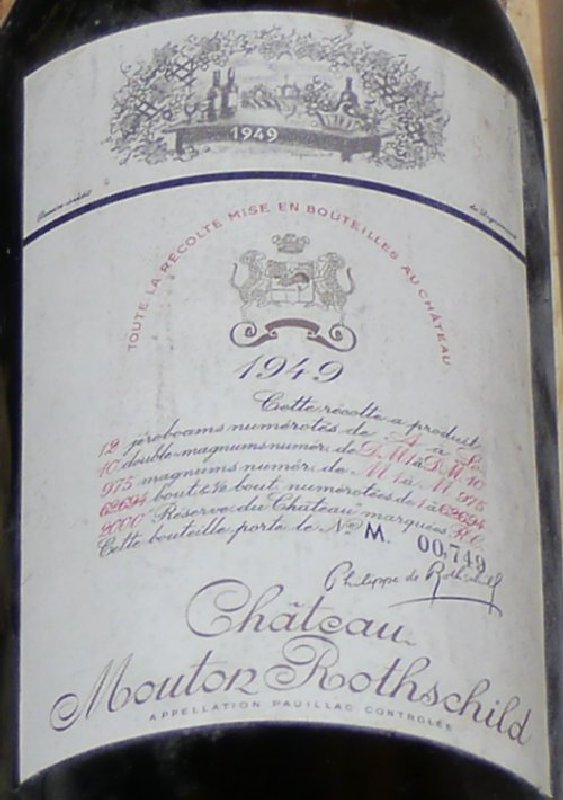 1949
TOUTE LA RÉCOLTE MISE EN BOUTEILLES AU CHÂTEAU
1949
Cette récolte a produit
12 jéroboams numérotés de A à
10 double magnums numér. de D.M.1 à D.M.10
975 magnums numér. de M 1 à M 975
bout. & ½ bout. numérotées de 1 à
2000 "Réserve du Château" marquées R.C.
Cette bouteille porte le No M. 00,749
Philippe de Rothschild
Château
Mouton Rothschild
APPELLATION PAUILLAC CONTROLÉE